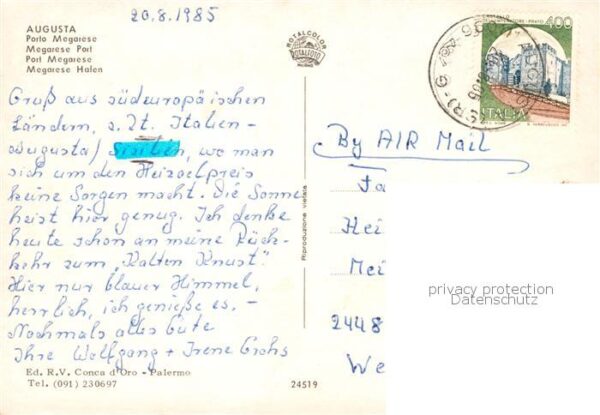 20.8.1985
AUGUSTA
Porto Megarese
Megarese Port
Port Megarese
Megarese Hafen
ROTALCOLOR
ROTALFOTO
MILANO
400
ITALIA
Gruß aus südeuropäischen
Ländern, z. Zt. Italien -
Augusta / Sizilien, wo man
sich um den Heizoelpreis
keine Sorgen macht. Die Sonne
heizt hier genug. Ich denke
heute schon an meine Rück-
kehr zum "Kalten Knust".
Hier nur blauer Himmel,
herrlich, ich genieße es. -
Nochmals alles Gute
Ihre Wolfgang + Irene
By AIR Mail
Fa
Hei
Mei
2448
We
Riproduzione vietata
privacy protection
Datenschutz
Ed. R.V. Conca d'Oro - Palermo
Tel. (091) 230697
24519